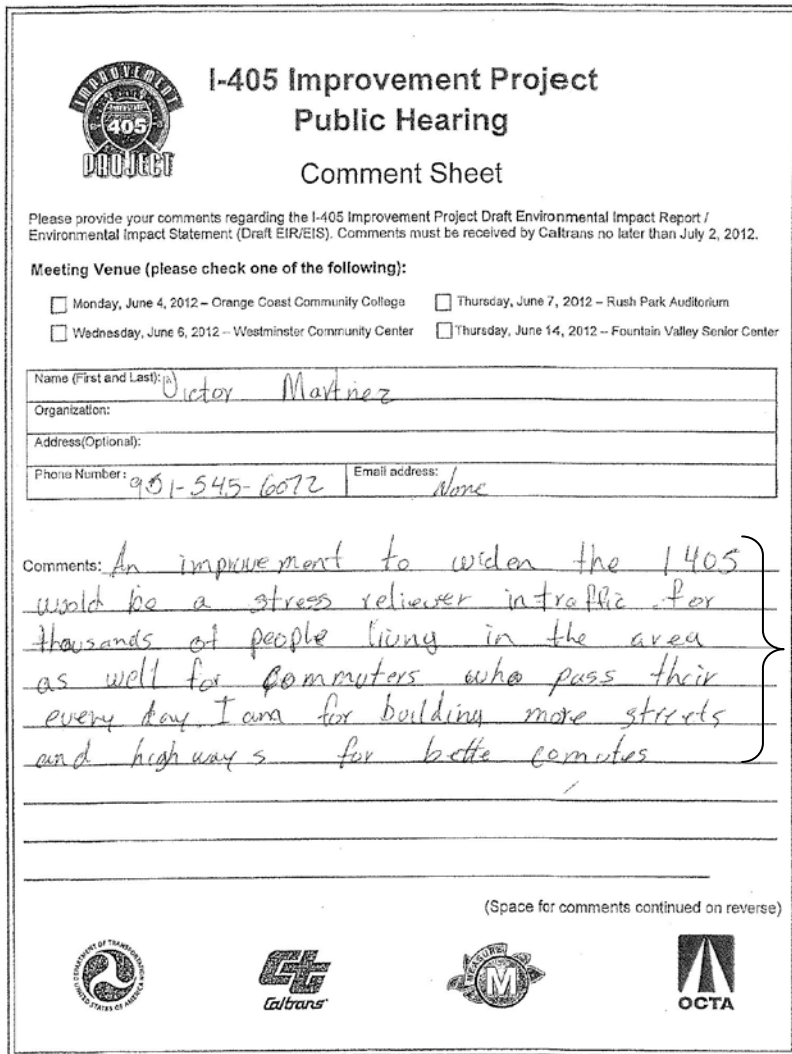 IMPROVEMENT
405
PROJECT
I-405 Improvement Project
Public Hearing
Comment Sheet
Please provide your comments regarding the I-405 Improvement Project Draft Environmental Impact Report /
Environmental Impact Statement (Draft EIR/EIS). Comments must be received by Caltrans no later than July 2, 2012.
Meeting Venue (please check one of the following):
Monday, June 4, 2012 – Orange Coast Community College
Thursday, June 7, 2012 – Rush Park Auditorium
Wednesday, June 6, 2012 – Westminster Community Center
Thursday, June 14, 2012 – Fountain Valley Senior Center
Name (First and Last): Victor Martinez
Organization:
Address(Optional):
Phone Number: 951-545-6072
Email address: None
Comments: An improvement to widen the I 405
would be a stress reliever in traffic for
thousands of people living in the area
as well for commuters who pass their
every day I am for building more streets
and highways for bette comutes
(Space for comments continued on reverse)
DEPARTMENT OF TRANSPORTATION
UNITED STATES OF AMERICA
Caltrans
MEASURE
M
OCTA